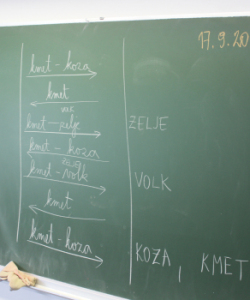 17.9.20
kmet - koza
kmet
kmet - zelje
ZELJE
kmet - koza
kmet - volk
VOLK
kmet
kmet - koza
KOZA, KMET